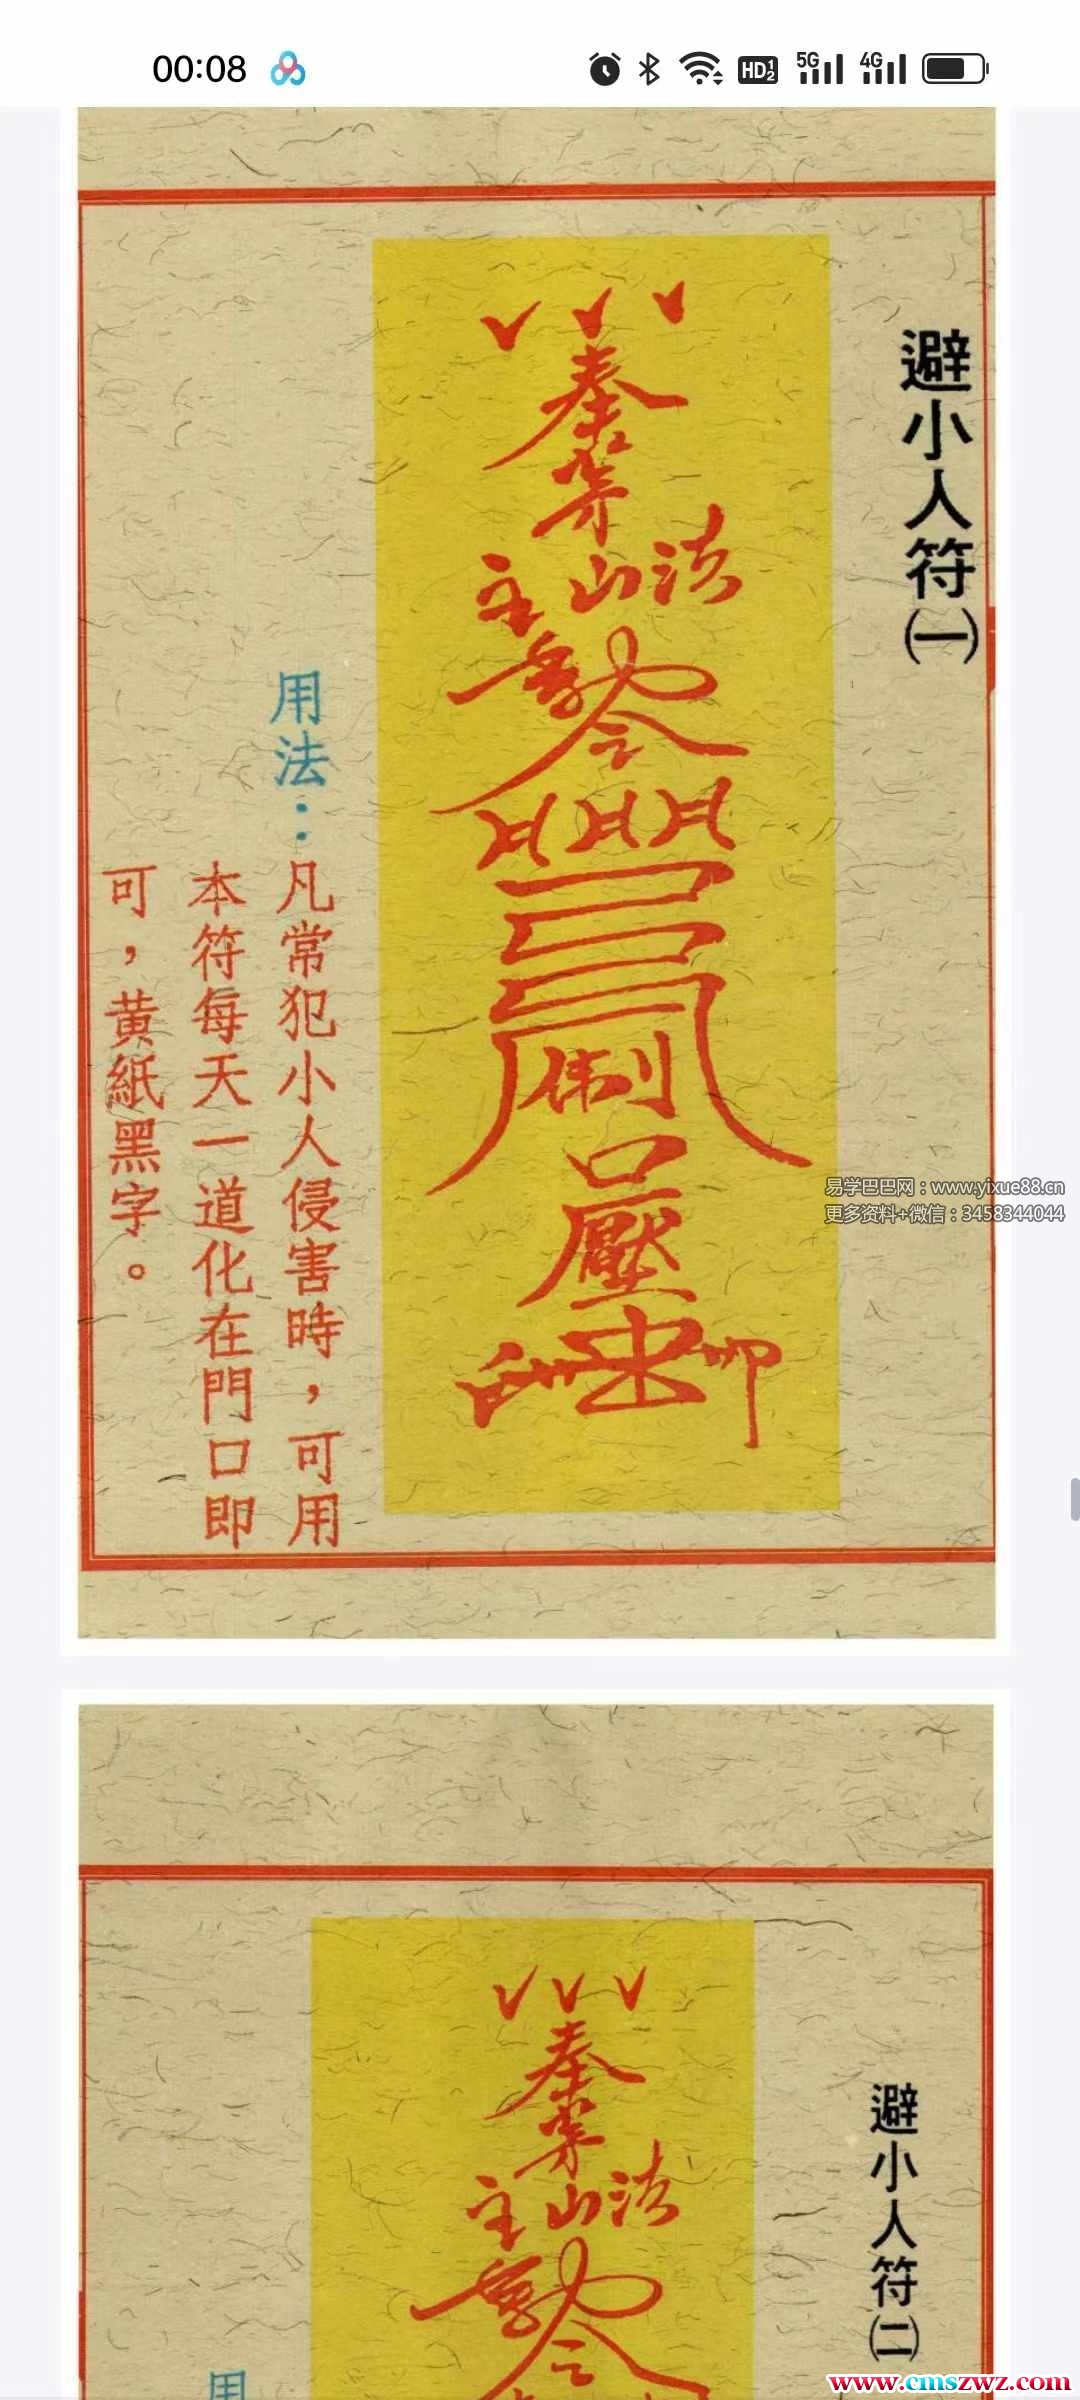 00:08
HD 1 2
5G
4G
避小人符(一)
奉
法山主
勅令
制
口
壓
印
用法：
凡常犯小人侵害時，可用
本符每天一道化在門口即
可，黃紙黑字。
易学巴巴网：www.yixue88.cn
更多资料+微信：3458344044
避小人符(二)
奉
法山主
勅令
用
www.cmszwz.com